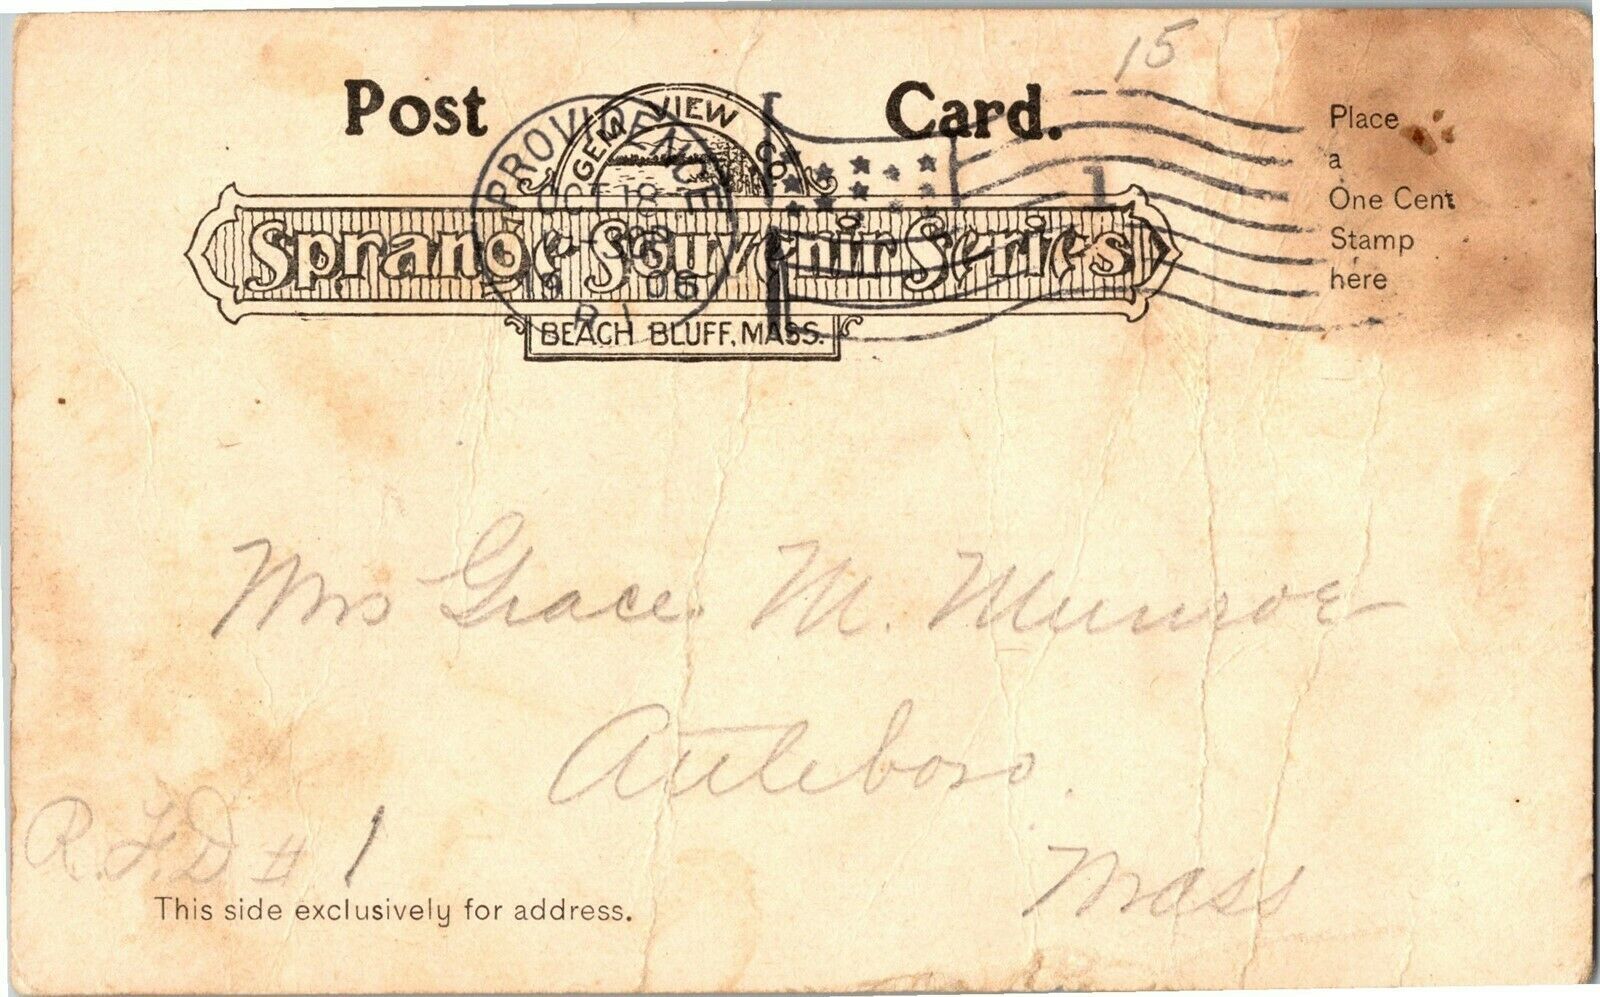 15
Post Card.
GEM VIEW CO.
Sprague Souvenir Series
BEACH BLUFF, MASS.
PROVIDENCE
OCT 18
1906
R.I.
1
Place
a
One Cent
Stamp
here
Mrs Grace M. Munroe
Attleboro.
Mass
R.F.D # 1
This side exclusively for address.